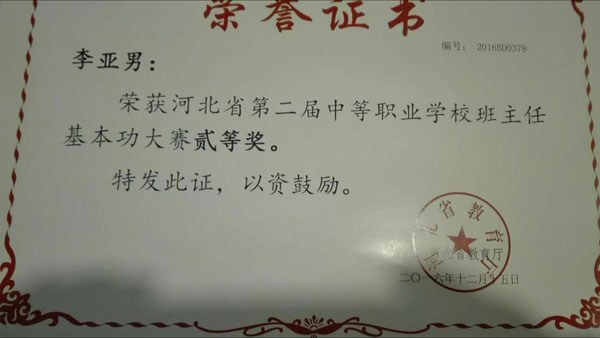 荣誉证书
编号： 2016BD0378
李亚男：
荣获河北省第二届中等职业学校班主任
基本功大赛贰等奖。
特发此证，以资鼓励。
河北省教育厅
北省教育厅
二〇一六年十二月十五日